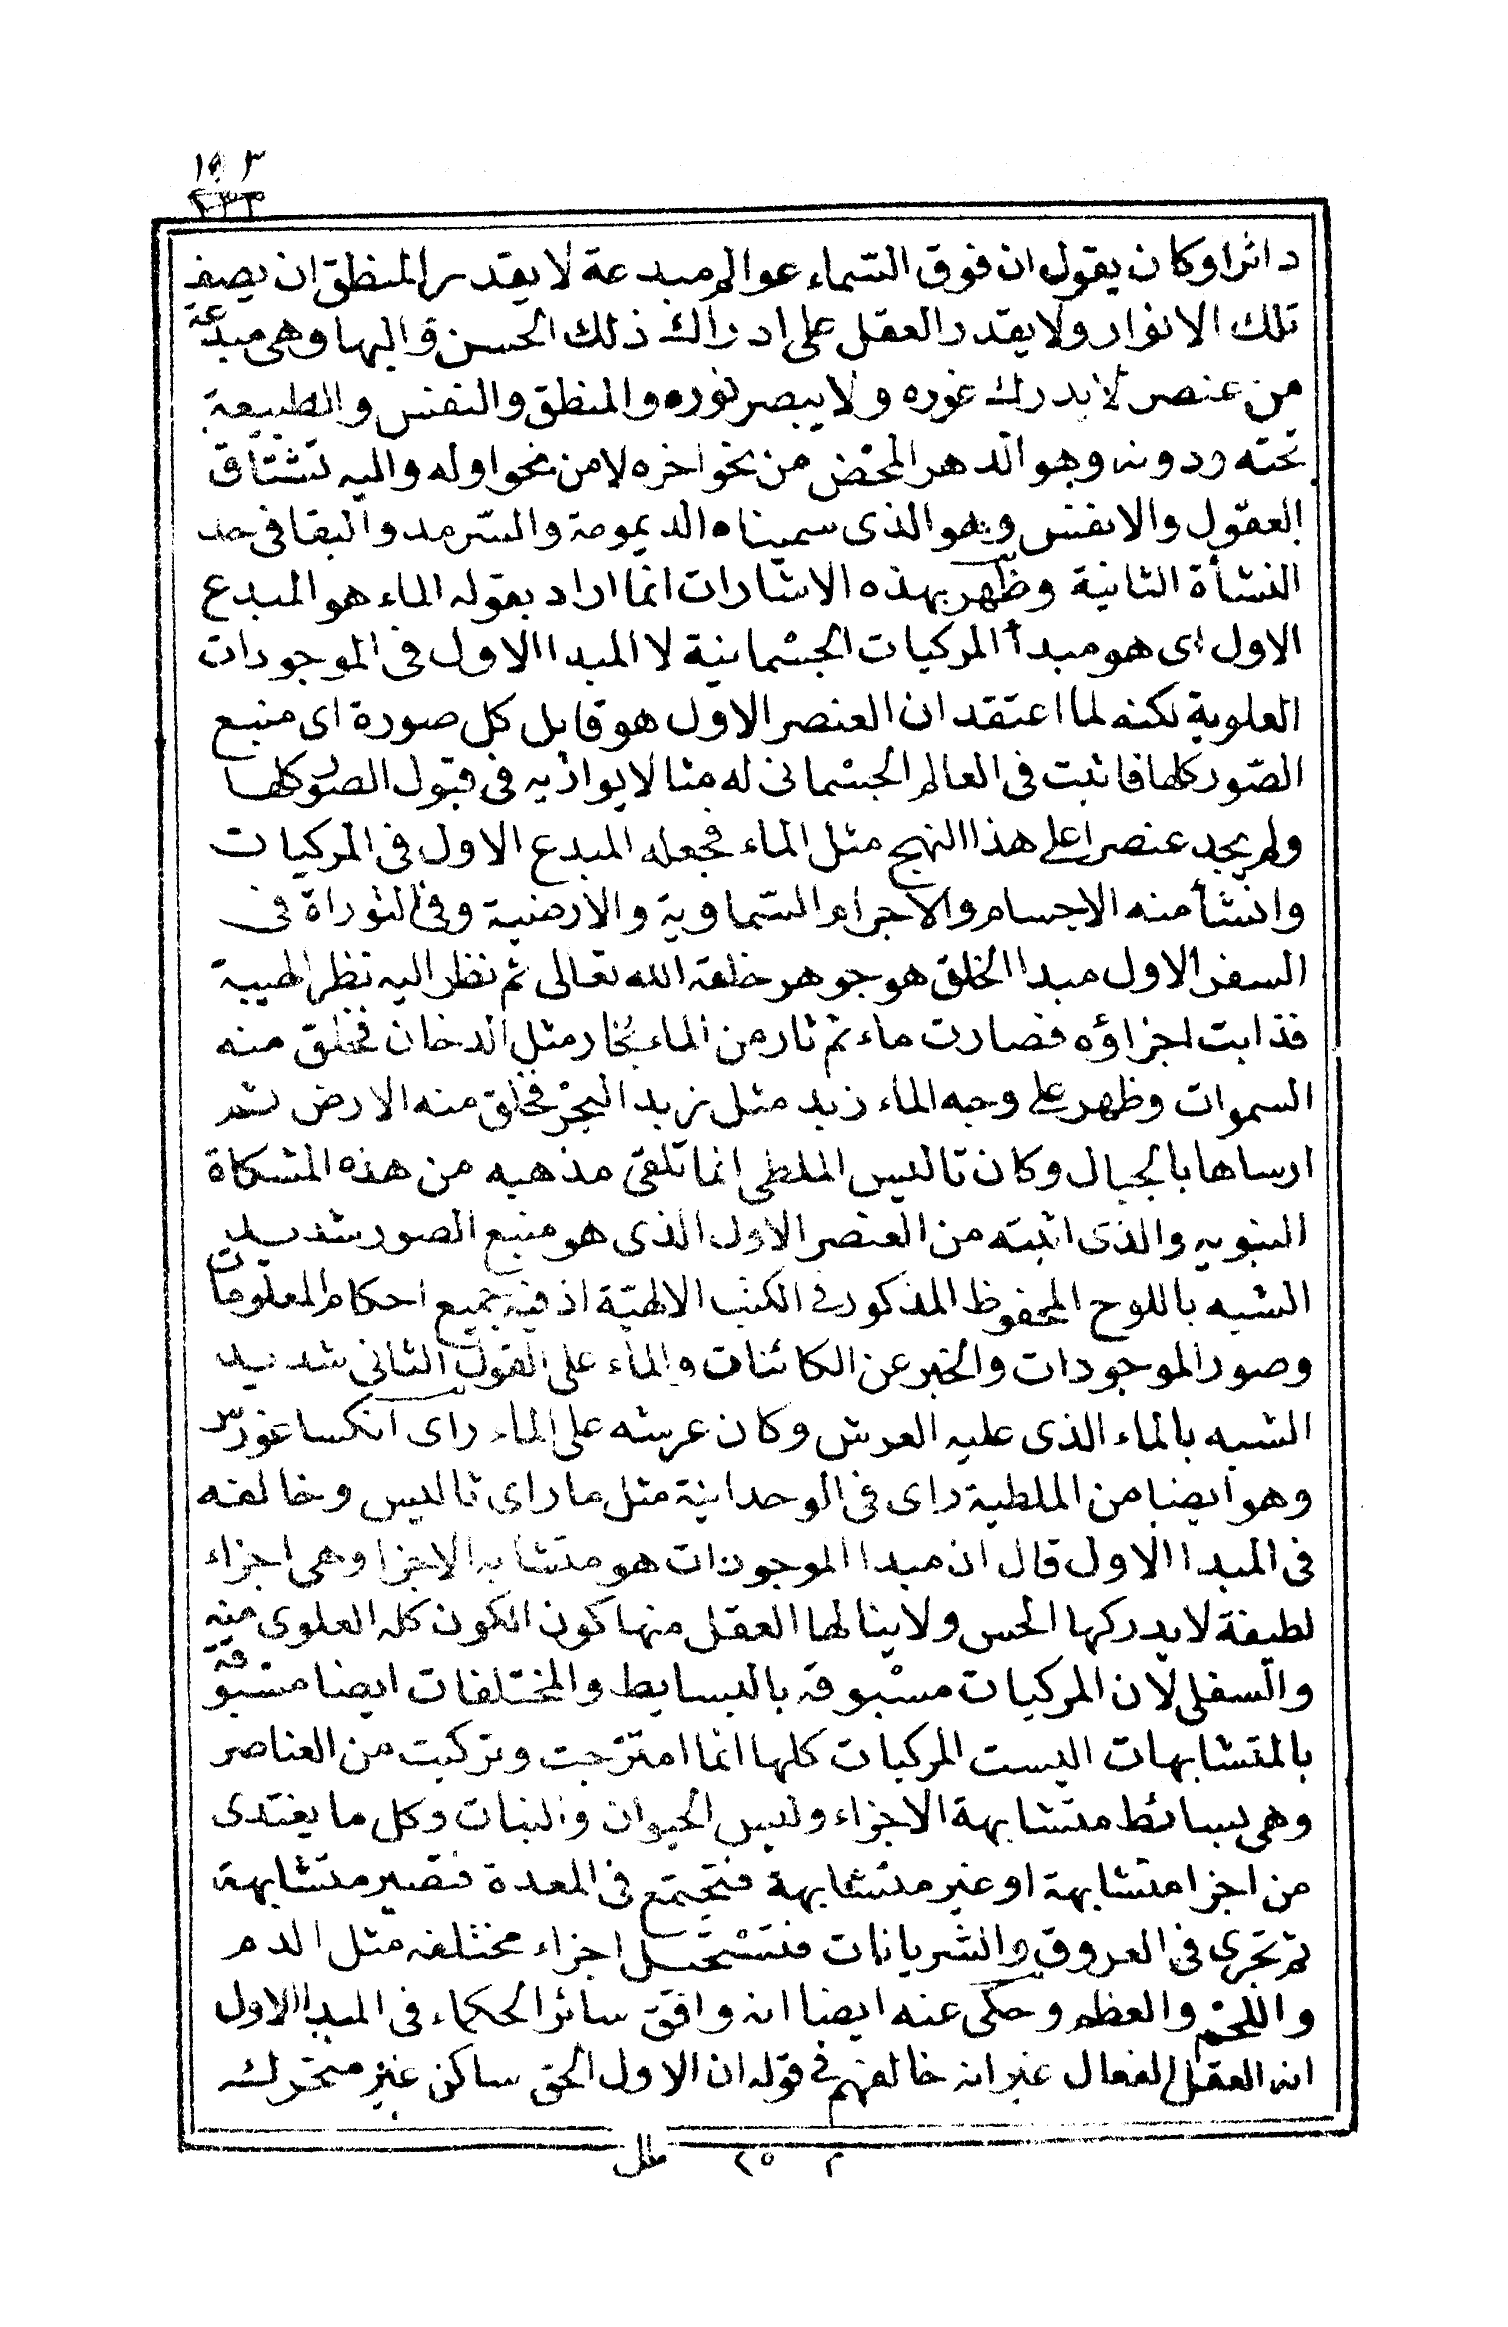 ١٥٣
٢٣٣
داثرا وكان يقول ان فوق السماء عوالم مبدعة لا يقدر المنطق ان يصف
تلك الانوار ولا يقدر العقل على ادراك ذلك الحسن والبها وهى مبدعة
من عنصر لا يدرك غوره ولا يبصر نوره والمنطق والنفس والطبيعة
تحته ودونه وهو الدهر المحض من نحو اخره لا من نحو اوله واليه تشتاق
العقول والانفس وهو الذى سميناه الديمومة والسّرمد والبقا فى حد
النشأة الثانية وظهر بهذه الاشارات انما اراد بقوله الماء هو المبدع
الاول اى هو مبدأ المركبات الجسْمانية لا المبدا الاول فى الموجودات
العلوية لكنه لما اعتقد ان العنصر الاول هو قابل كل صورة اى منبع
الصّور كلها فاثبت فى العالم الجسْمانى له مثالا يوازيه فى قبول الصور كلها
ولم يجد عنصرا على هذا النهج مثل الماء فجعله المبدع الاول فى المركبات
وانشأ منه الاجسام والاجرام السّماوية والارضية وفى التوراة فى
السفر الاول مبدا الخلق هو جوهر خلقه الله تعالى ثم نظر اليه نظر الهيبة
فذابت اجزاؤه فصارت ماء ثم ثار من الماء بخار مثل الدخان فخلق منه
السموات وظهر على وجه الماء زبد مثل زبد البحْر فخلق منه الارض ثم
ارساها بالجبال وكان تاليس الملطى انما تلقى مذهبه من هذه المشكاة
النبويه والذى اثبته من العنصر الاول الذى هو منبع الصور شديد
الشبه باللوح المحفوظ المذكور فى الكتب الالهيّة اذ فيه جميع احكام المعلومات
وصور الموجودات والخبر عن الكائنات والماء على القول الثانى شديد
الشبه بالماء الذى عليه العرش وكان عرشه على الماء راى انكساغورس
وهو ايضا من الملطية راى فى الوحدانية مثل ما راى تاليس وخالفه
فى المبدا الاول قال ان مبدا الموجودات هو متشابه الاجزا وهى اجزاء
لطيفة لا يدركها الحس ولا ينالها العقل منها كون الكون كله العلوى منه
والسفلى لان المركبات مسْبوقه بالبسايط والمختلفات ايضا مسْبوقة
بالمتشابهات اليست المركبات كلها انما امتزجت وتركبت من العناصر
وهى بسائط متشابهة الاجزاء وليس الحيوان والنبات وكل ما يغتدى
من اجزا متشابهة او غير متشابهة فتجتمع فى المعدة فتصير متشابهة
ثم تجرى فى العروق والشريانات فتسْتحيل اجزاء مختلفه مثل الدم
واللحْم والعظم وحكى عنه ايضا انه وافق سائر الحكماء فى المبدا الاول
انه العقل الفعال غير انه خالفهم فى قوله ان الاول الحق ساكن غير متحرك
م ٢٥ ملل